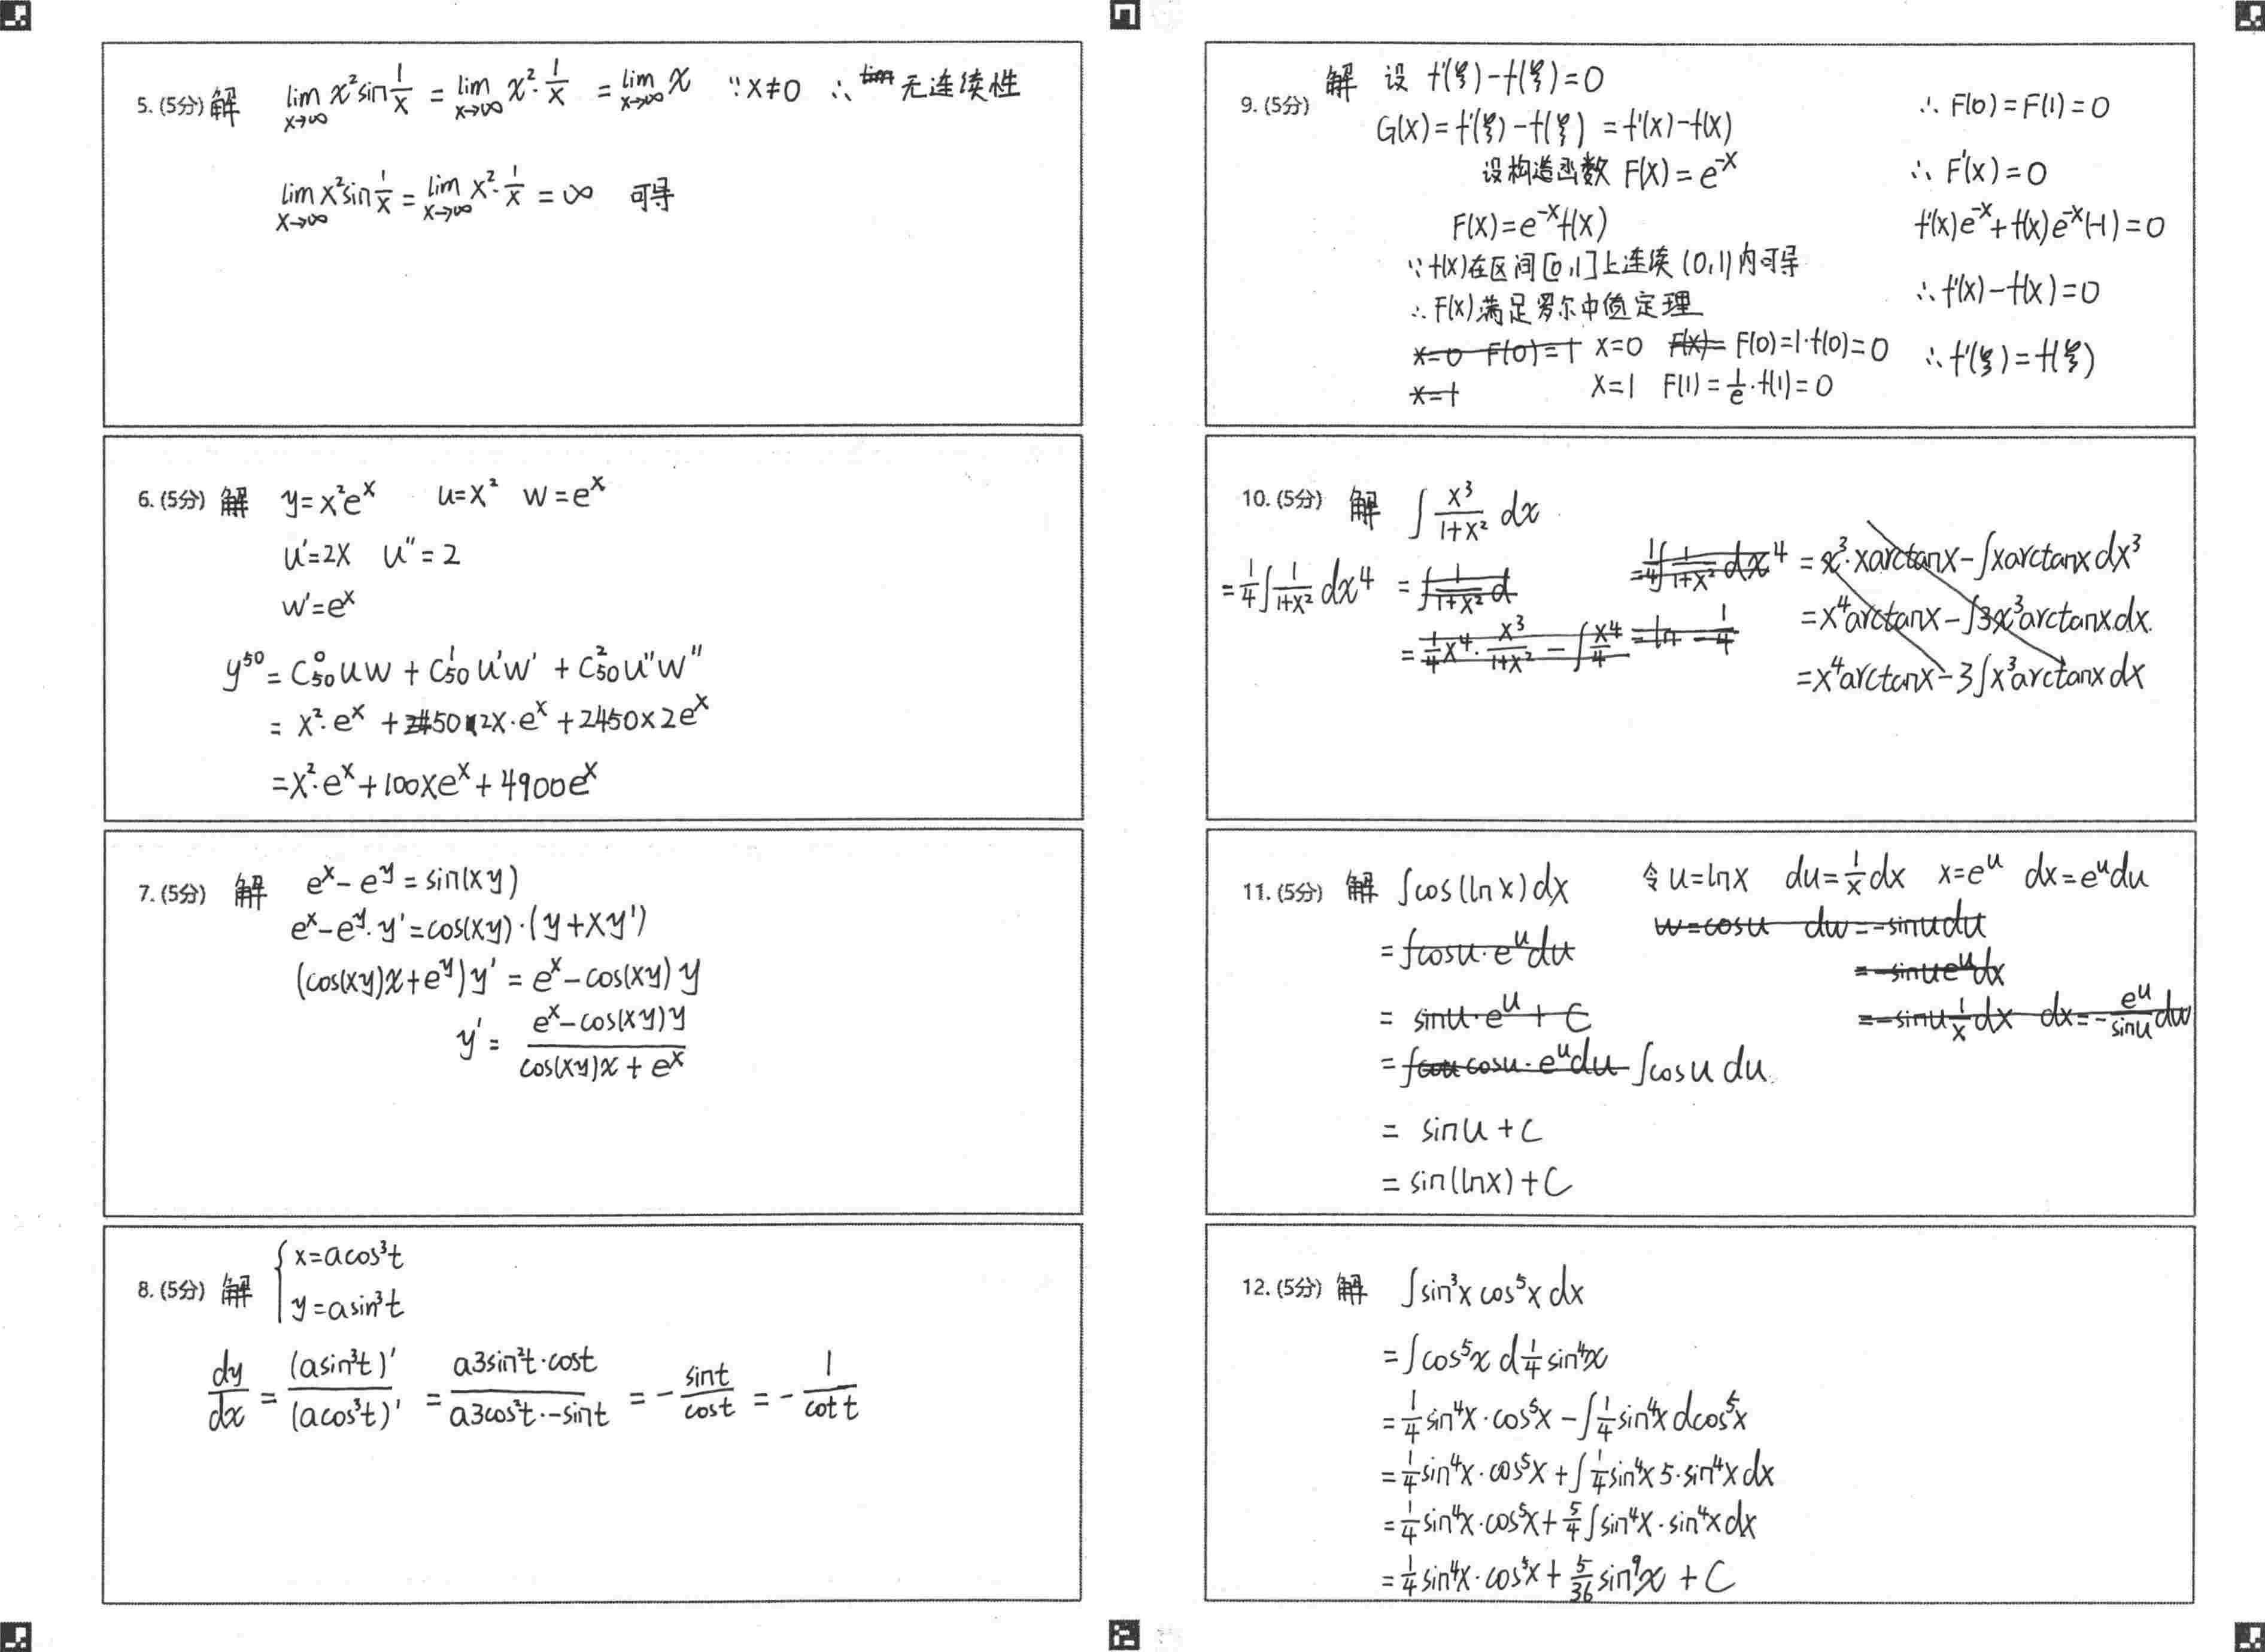 5. (5分) 解 lim_{x→∞} x²sin 1/x = lim_{x→∞} x²·1/x = lim_{x→∞} x ∵x≠0 ∴ 无连续性
lim_{x→∞} x²sin 1/x = lim_{x→∞} x²·1/x = ∞ 可导
6. (5分) 解 y=x²eˣ u=x² w=eˣ
u'=2x u''=2
w'=eˣ
y⁵⁰ = C⁰₅₀uw + C¹₅₀u'w' + C²₅₀u''w''
= x²·eˣ + 50·2x·eˣ + 2450×2eˣ
= x²·eˣ + 100xeˣ + 4900eˣ
7. (5分) 解 eˣ-e^y = sin(xy)
eˣ-e^y·y' = cos(xy)·(y+xy')
(cos(xy)x+e^y)y' = eˣ-cos(xy)y
y' = (eˣ-cos(xy)y)/(cos(xy)x+eˣ)
8. (5分) 解 { x=acos³t
y=asin³t
dy/dx = (asin³t)'/(acos³t)' = a3sin²t·cost/a3cos²t·-sint = -sint/cost = -1/cot t
9. (5分) 解 设 f'(ξ)-f(ξ)=0
G(x)=f'(ξ)-f(ξ)=f'(x)-f(x)
设构造函数 F(x)=e⁻ˣ
F(x)=e⁻ˣf(x)
∵f(x)在区间[0,1]上连续 (0,1)内可导
∴F(x)满足罗尔中值定理
x=0 F(0)=1 x=0 F(x)= F(0)=1·f(0)=0
x=1 x=1 F(1)=1/e·f(1)=0
∴F(0)=F(1)=0
∴F'(x)=0
f'(x)e⁻ˣ+f(x)e⁻ˣ(-1)=0
∴f'(x)-f(x)=0
∴f'(ξ)=f(ξ)
10. (5分) 解 ∫ x³/(1+x²) dx
= 1/4∫ 1/(1+x²) dx⁴ = ∫ 1/(1+x²) d
= 1/4x⁴·x³/(1+x²) - ∫ x⁴/4
= 1/4∫ 1/(1+x²) dx⁴ = x³·xarctanx-∫xarctanx dx³
= x⁴arctanx-∫3x³arctanx dx
= x⁴arctanx-3∫x³arctanx dx
11. (5分) 解 ∫cos(lnx)dx 令u=lnx du=1/x dx x=eᵘ dx=eᵘdu
= ∫cosu·eᵘdu w=cosu dw=-sinudu
= -sinueᵘdx
= sinu·eᵘ+C = -sinu 1/x dx dx=-eᵘ/sinu dw
= ∫cosu·eᵘdu ∫cosu du
= sinu+C
= sin(lnx)+C
12. (5分) 解 ∫sin³x cos⁵x dx
= ∫cos⁵x d 1/4 sin⁴x
= 1/4 sin⁴x·cos⁵x - ∫1/4 sin⁴x dcos⁵x
= 1/4 sin⁴x·cos⁵x + ∫1/4 sin⁴x 5·sin⁴x dx
= 1/4 sin⁴x·cos⁵x + 5/4∫sin⁴x·sin⁴x dx
= 1/4 sin⁴x·cos⁵x + 5/36 sin⁹x + C